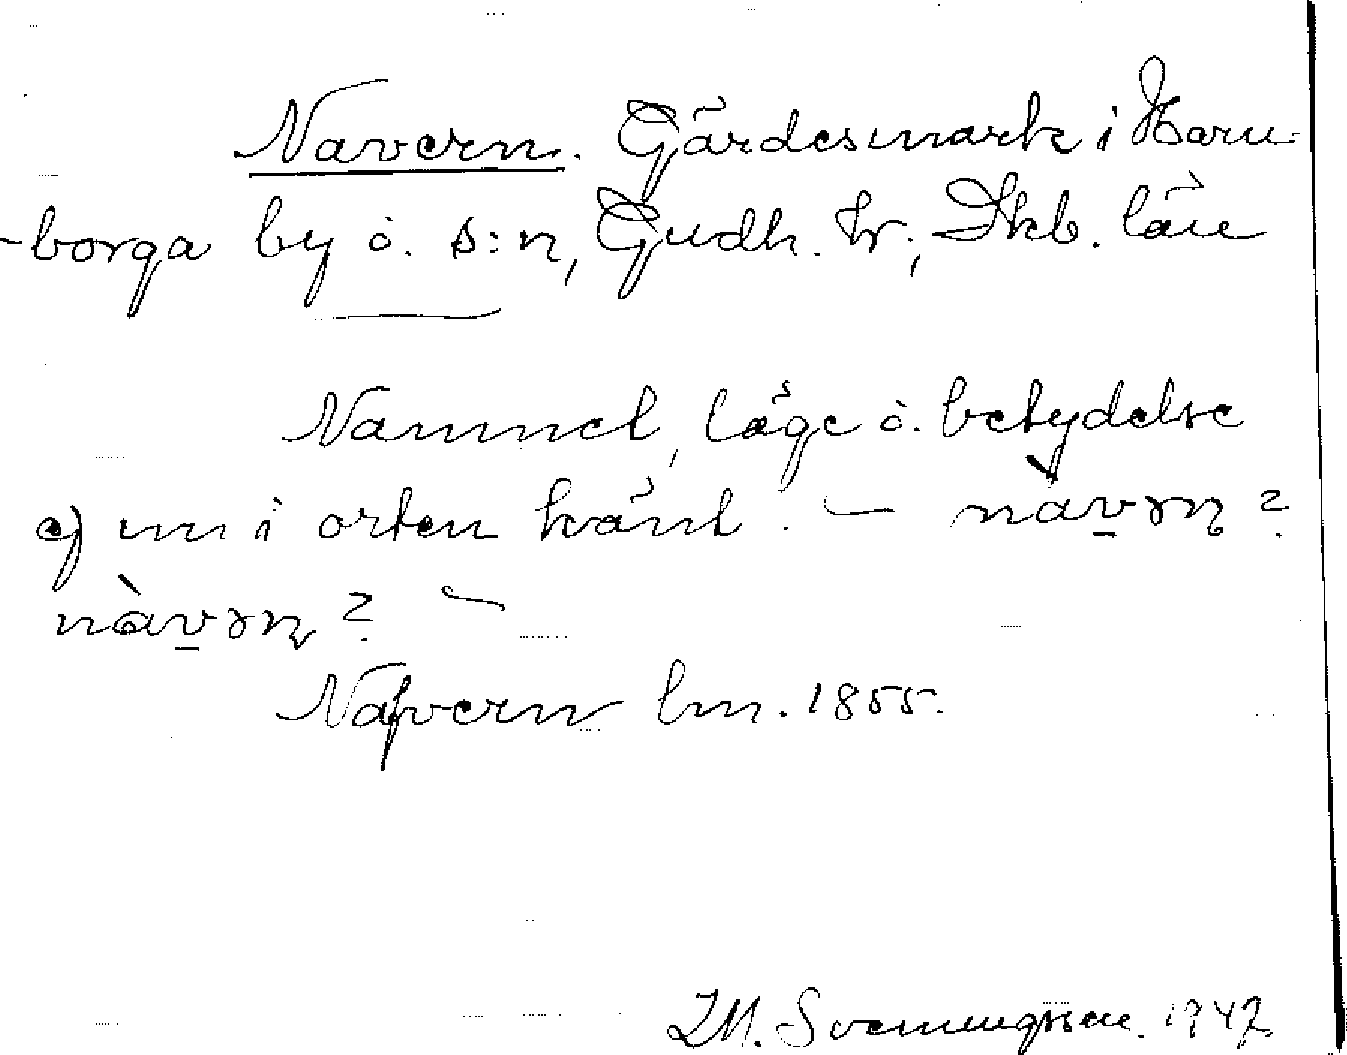 Navern. Gärdesmark i Karu-
-borga by o. s:n, Gudh. hr; Skb. län
Namnet, läge o. betydelse
ej nu i orten känt. — nàvərn?
nàvərn? —
Nafvern lm. 1855.
M. Svenungsson. 1947